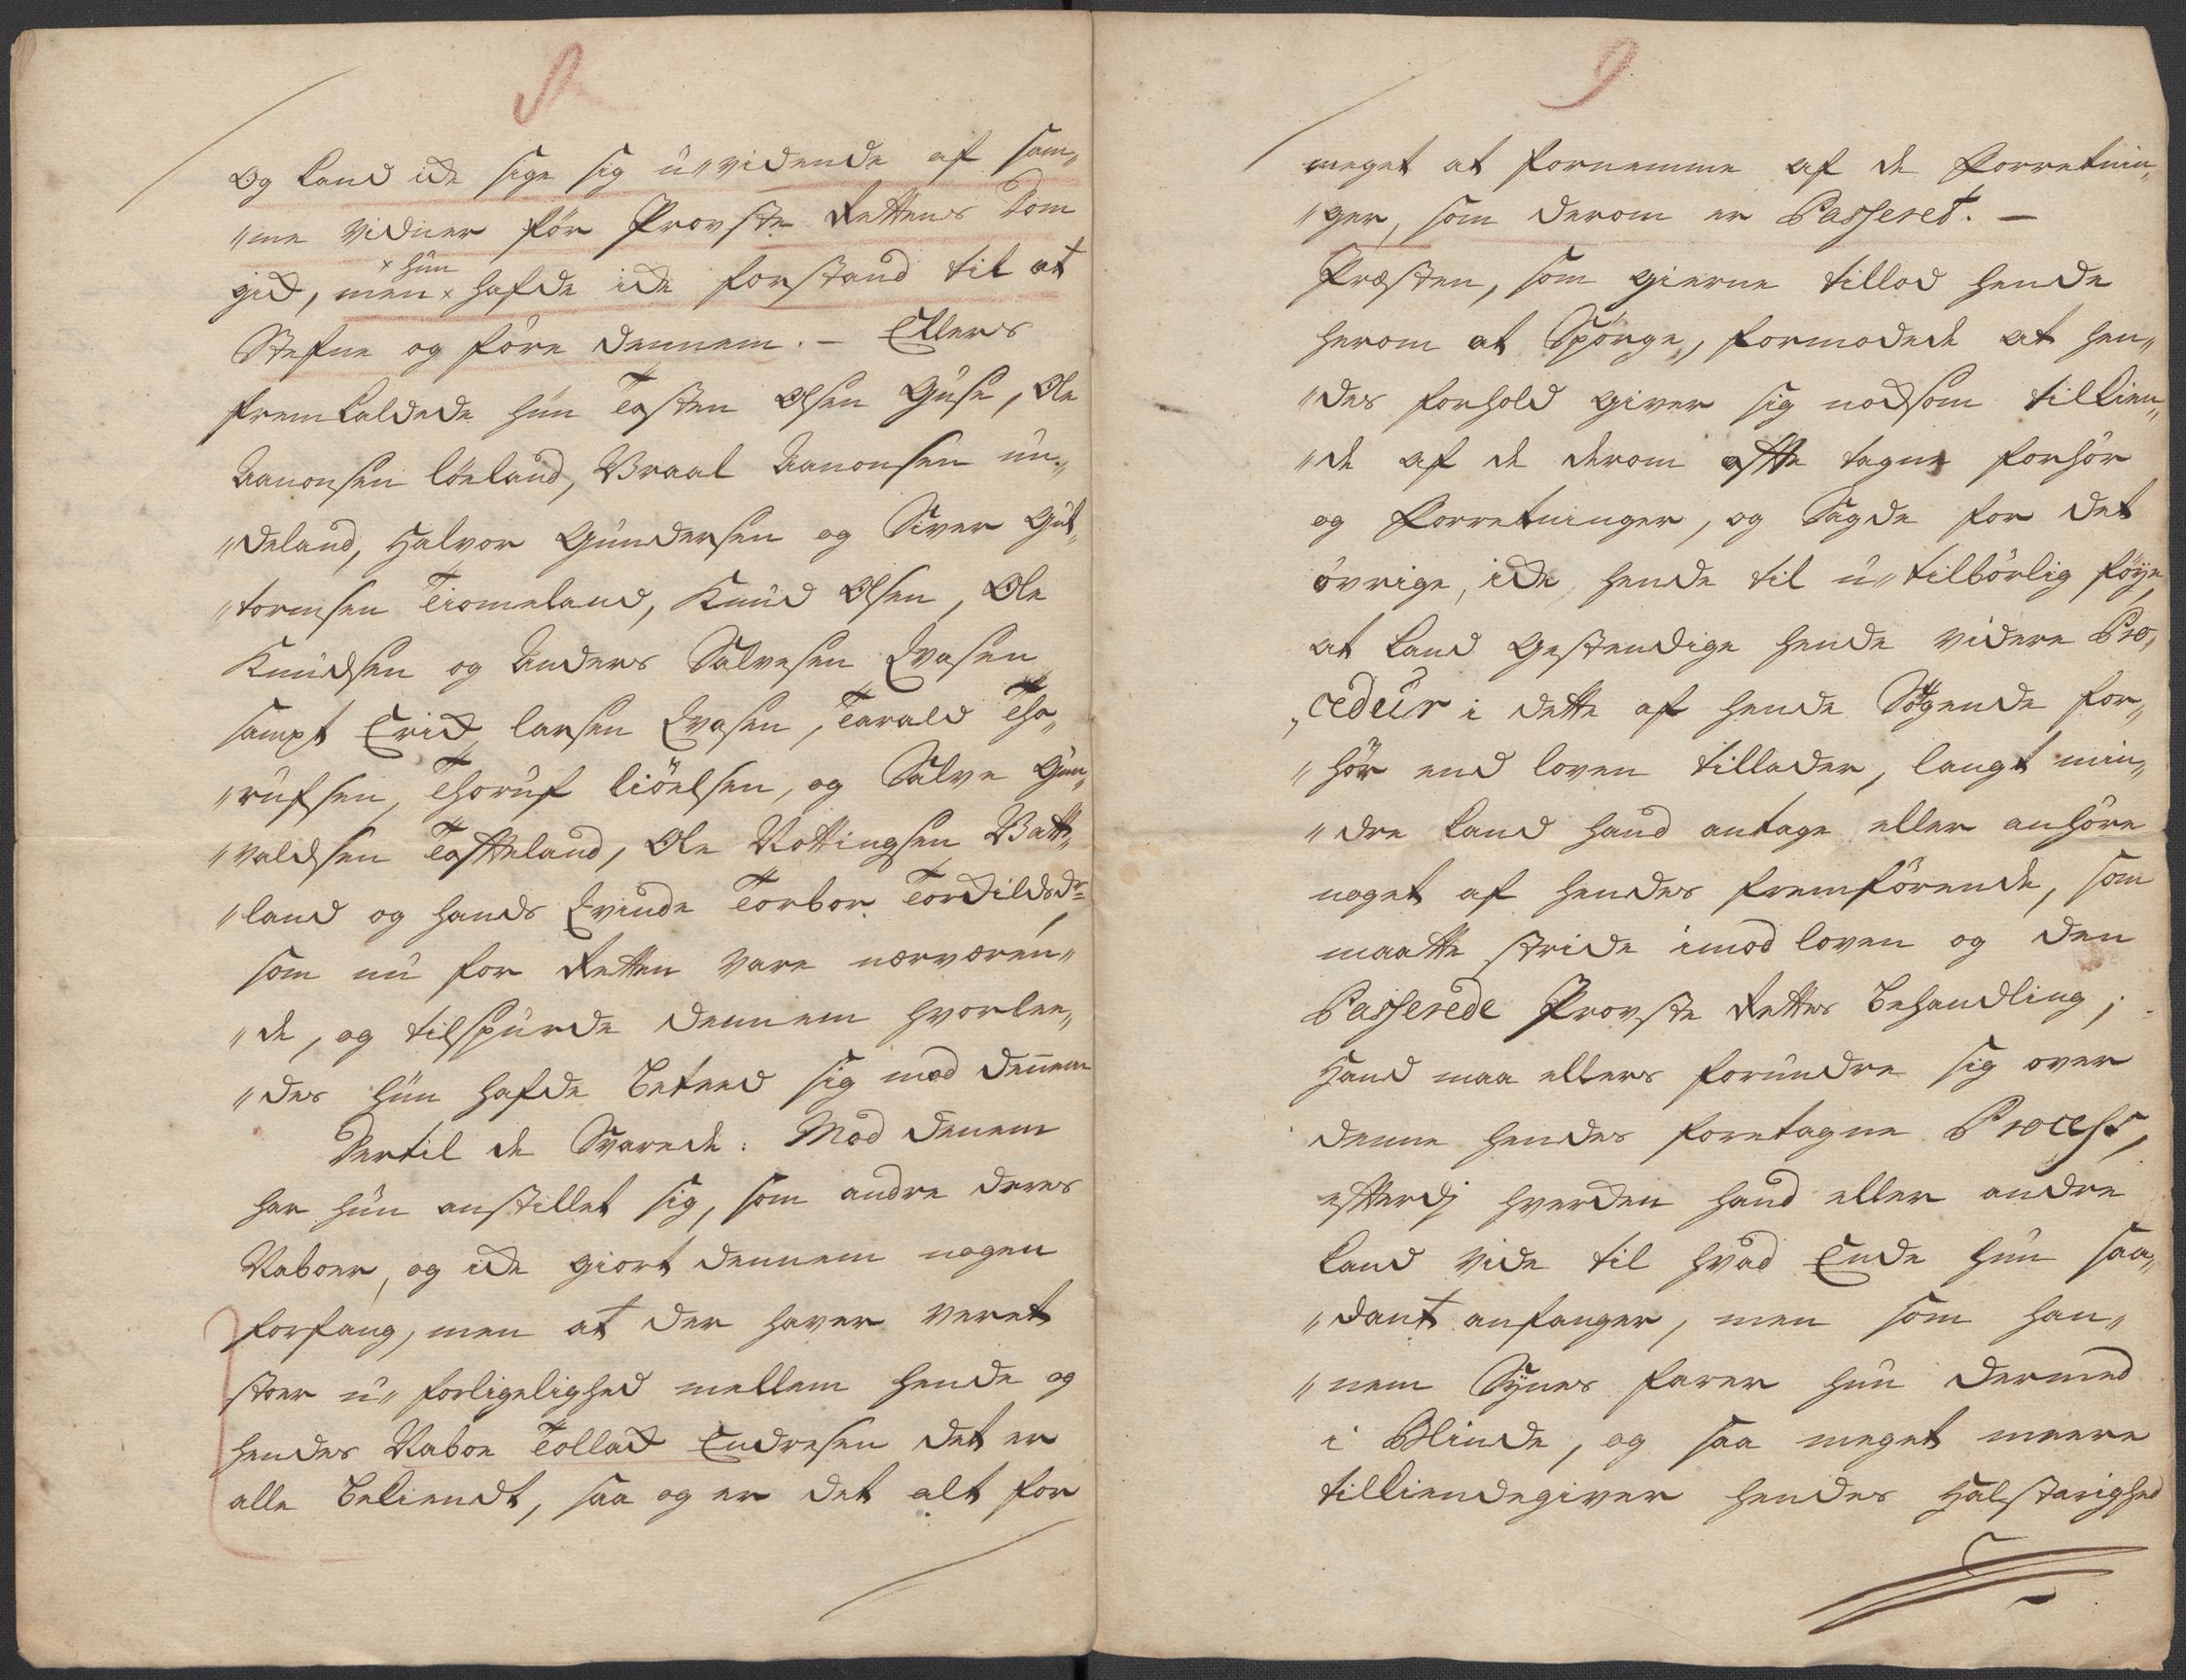 og kand icke sige sig u-vidende af sam„
„me vidner før Provste Rettens Dom
gick, men × hafde icke forstand til at
× hun
Stefne og føre dennem. – Ellers
fremkaldede hun Tosten Olsen Guse, Ole
Aanonsen Löeland, Braal Aanonsen un„
„deland, Halvor Gundersen og Siver Gut„
„tormsen Tiomeland, Knud Olsen, Ole
Knudsen og Anders Salvesen Qvasen
sampt Erick Larsen Qvasen, Tarald Tho„
„rufsen, Thoruf Liöelsen, og Salve Gun„
„valdsen Tofteland, Ole Nottingsen Batt„
„land og hands Qvinde Torbor Torkildsdr
som nu for Retten vare nærværen„
„de, og tilspurde dennem hvorlee„
„des hun hafde beteed sig mod dennem
Dertil de svarede: Mod denem
har hun anstillet sig, som andre deres
Naboer, og icke giort dennem nogen
forfang, men at der haver veret
stoer u-forligelighed mellem hende og
hendes Naboe Tollack Endresen det er
alle bekiendt, saa og er det alt for
9
meget at fornemme af de Forretnin„
„ger, som derom er Passeret. –
Præsten, som gierne tillod hende
herom at Spørge, formodede at hen„
„des forhold giver sig nocksom tilkien„
„de af de derom ofte tagne forhör
og Forretninger, og Sagde for det
övrige, icke hende til u-tilbörlig föye,
at kand gestendige hende videre Pro„
„cedur i dette af hende Søgende for„
„hör end loven tillader, langt min„
„dre kand hand antage eller anhöre
noget af hendes fremförende, som
maatte stride imod loven og den
Passerede Provste Rettes behandling;
Hand maa ellers forundre sig over
denne hendes foretagne Process,
efterdj hverken hand eller andre
kand vide til hvad Ende hun saa„
„dant anfanger, men som han„
„nem Synes farer hun dermed
i Blinde, og saa meget meere
tilkiendegiver hendes Halstarighed